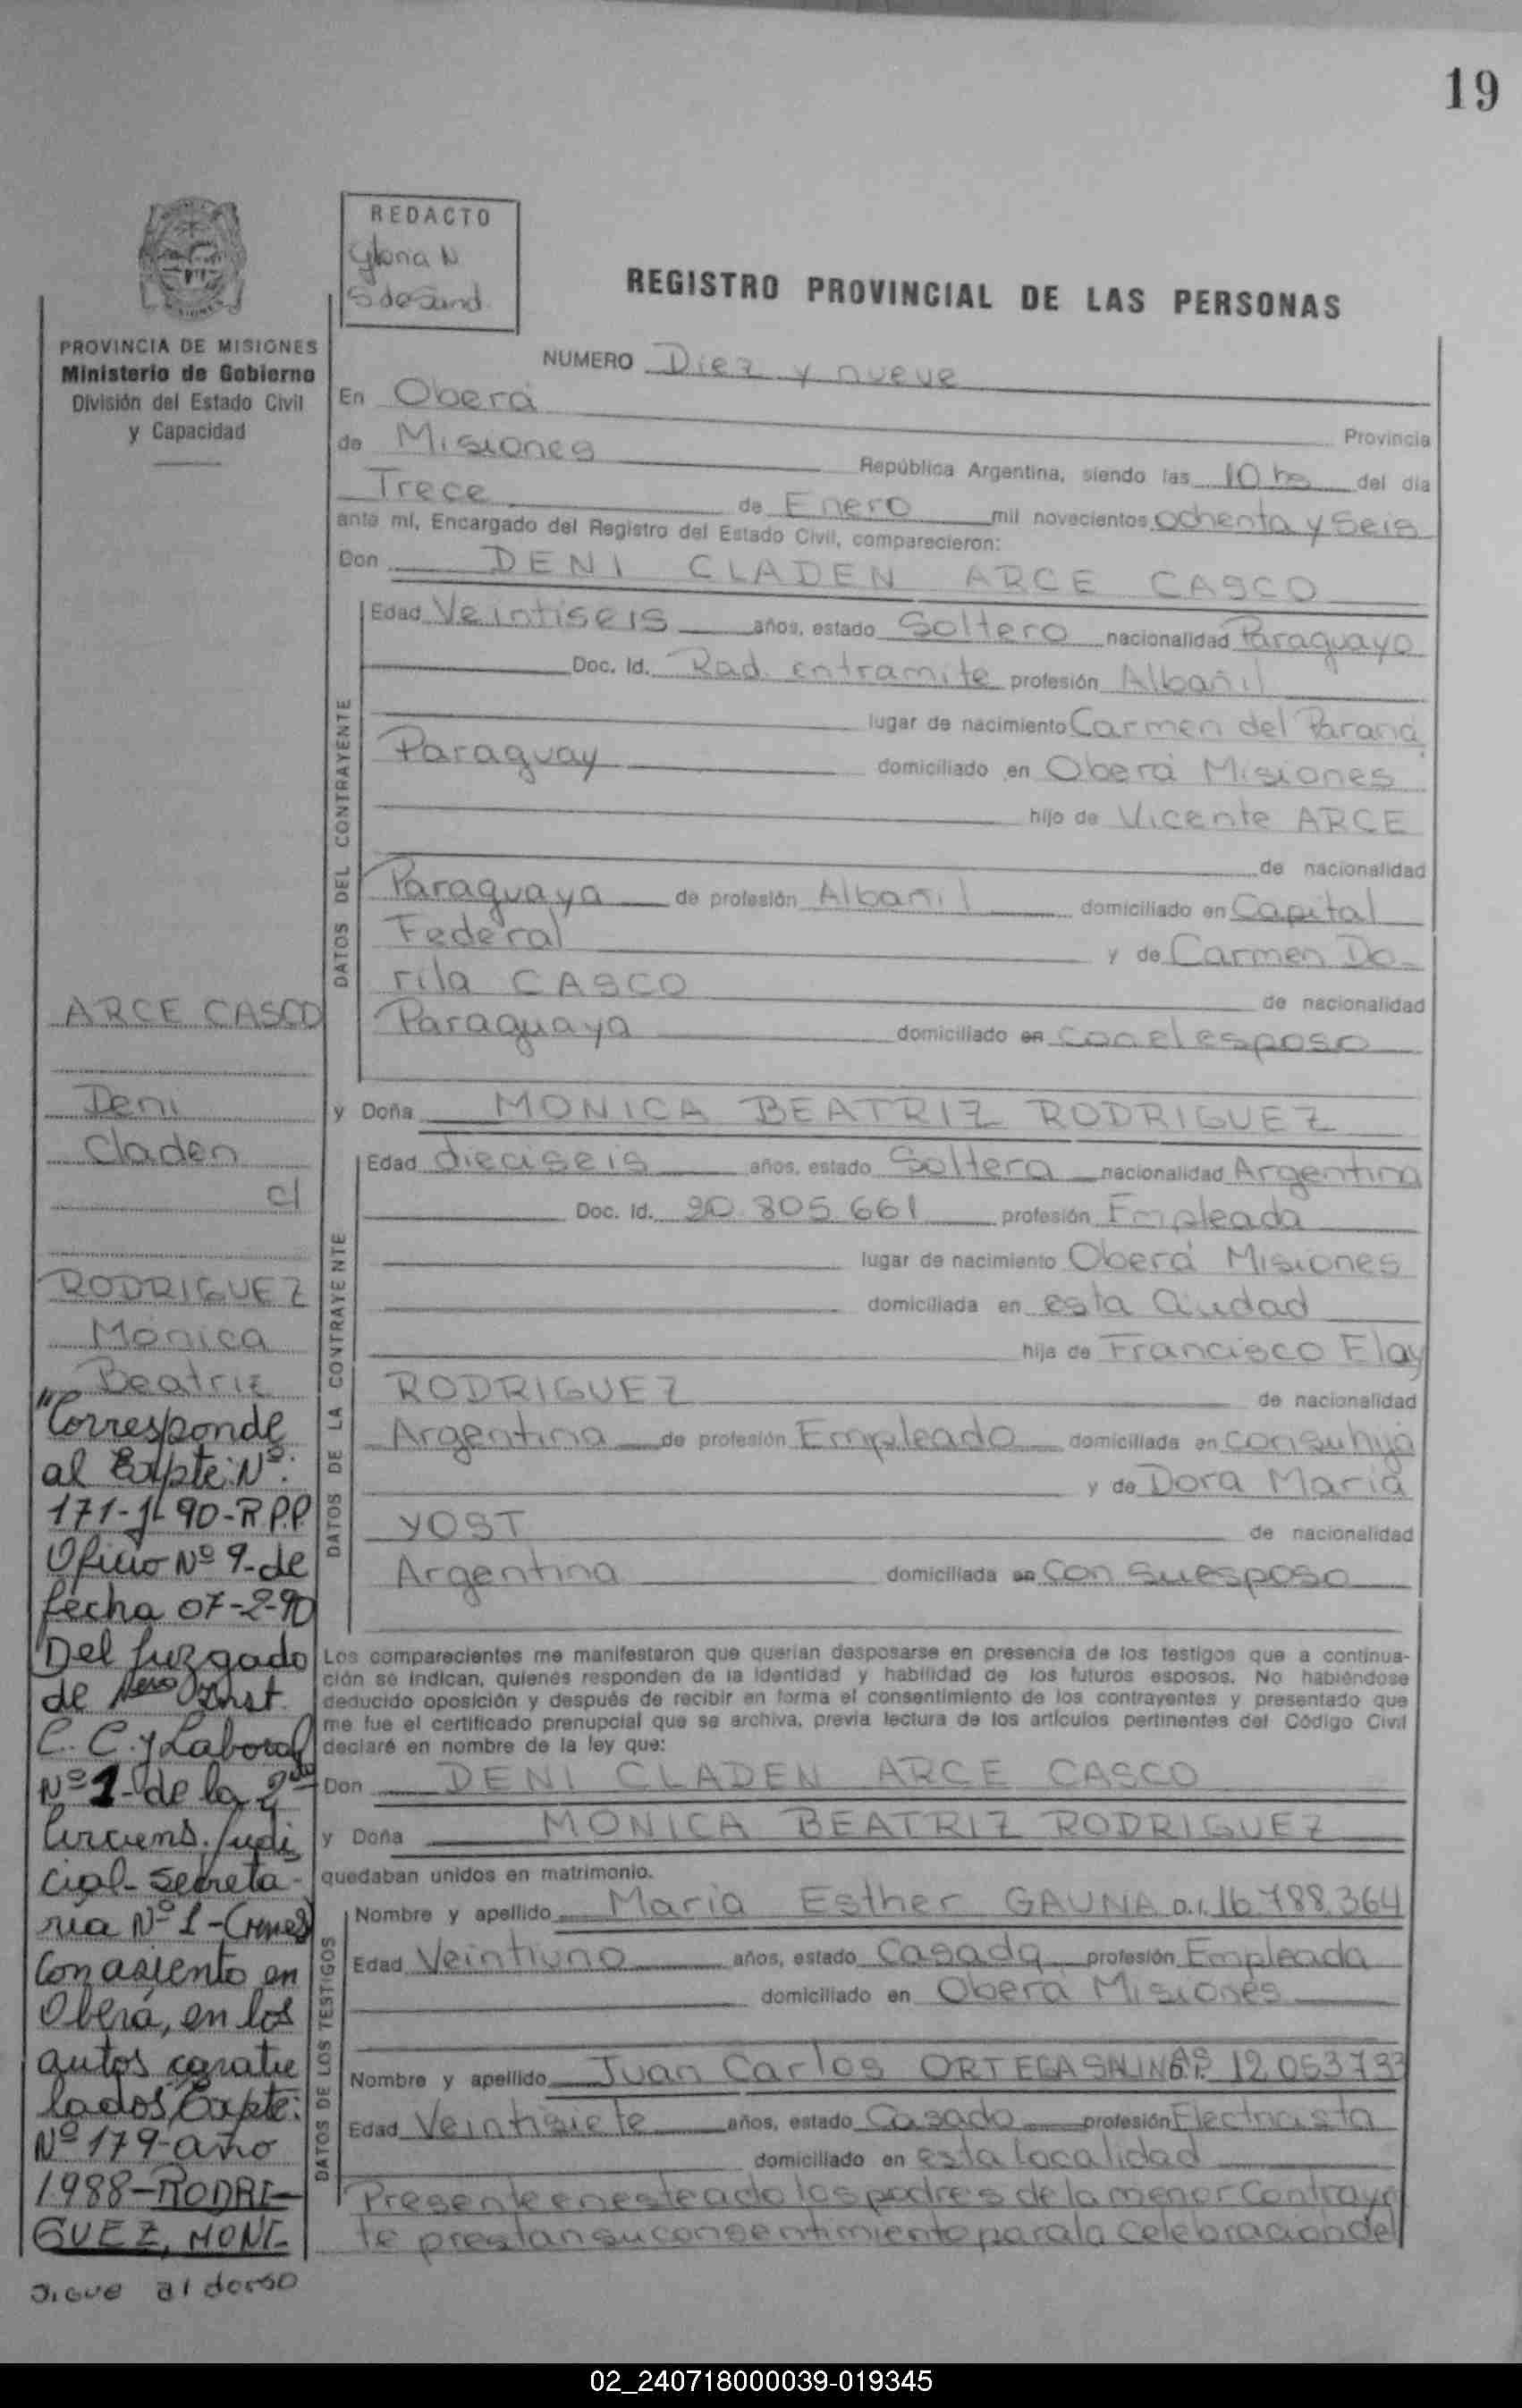 19
REDACTO
Gloria N
S de Sand
REGISTRO PROVINCIAL DE LAS PERSONAS
PROVINCIA DE MISIONES
Ministerio de Gobierno
División del Estado Civil
y Capacidad
NUMERO Diez y nueve
En Oberá Provincia
de Misiones República Argentina, siendo las 10 hs del día
Trece de Enero mil novecientos ochenta y seis
ante mí, Encargado del Registro del Estado Civil, comparecieron:
Don DENI CLADEN ARCE CASCO
DATOS DEL CONTRAYENTE
Edad Veintiseis años, estado Soltero nacionalidad Paraguayo
Doc. Id. Rad. entramite profesión Albañil
lugar de nacimiento Carmen del Paraná
Paraguay domiciliado en Oberá Misiones
hijo de Vicente ARCE
de nacionalidad
Paraguaya de profesión Albañil domiciliado en Capital
Federal y de Carmen Do-
rila CASCO de nacionalidad
Paraguaya domiciliado en con el esposo
y Doña MONICA BEATRIZ RODRIGUEZ
DATOS DE LA CONTRAYENTE
Edad dieciseis años, estado Soltera nacionalidad Argentina
Doc. Id. 20.805.661 profesión Empleada
lugar de nacimiento Oberá Misiones
domiciliada en esta Ciudad
hija de Francisco Elay
RODRIGUEZ de nacionalidad
Argentina de profesión Empleado domiciliada en con su hija
y de Dora María
YOST de nacionalidad
Argentina domiciliada en con su esposo
Los comparecientes me manifestaron que querían desposarse en presencia de los testigos que a continua-
ción se indican, quienes responden de la identidad y habilidad de los futuros esposos. No habiéndose
deducido oposición y después de recibir en forma el consentimiento de los contrayentes y presentado que
me fue el certificado prenupcial que se archiva, previa lectura de los artículos pertinentes del Código Civil
declaré en nombre de la ley que:
Don DENI CLADEN ARCE CASCO
y Doña MONICA BEATRIZ RODRIGUEZ
quedaban unidos en matrimonio.
DATOS DE LOS TESTIGOS
Nombre y apellido María Esther GAUNA D.I. 16.788.364
Edad Veintiuno años, estado Casada profesión Empleada
domiciliado en Oberá Misiones
Nombre y apellido Juan Carlos ORTEGA SALINAS D.I. 12.053.793
Edad Veintisiete años, estado Casado profesión Electricista
domiciliado en esta localidad
Presente en este acto los padres de la menor Contrayen
te prestan su consentimiento para la celebración del
ARCE CASCO
Deni
Claden
c/
RODRIGUEZ
Mónica
Beatriz
"Corresponde
al Expte: Nº:
171-J-90-R.P.P
Oficio Nº 9-de
fecha 07-2-90
Del Juzgado
de Inst.
C. C. y Laboral
Nº 1-de la 2da
Circuns. Judi
cial-Secreta-
ria Nº 1-
Con asiento en
Oberá, en los
autos caratu
lados Expte:
Nº 179-año
1988-RODRI-
GUEZ, MONI-
Sigue al dorso
02_240718000039-019345